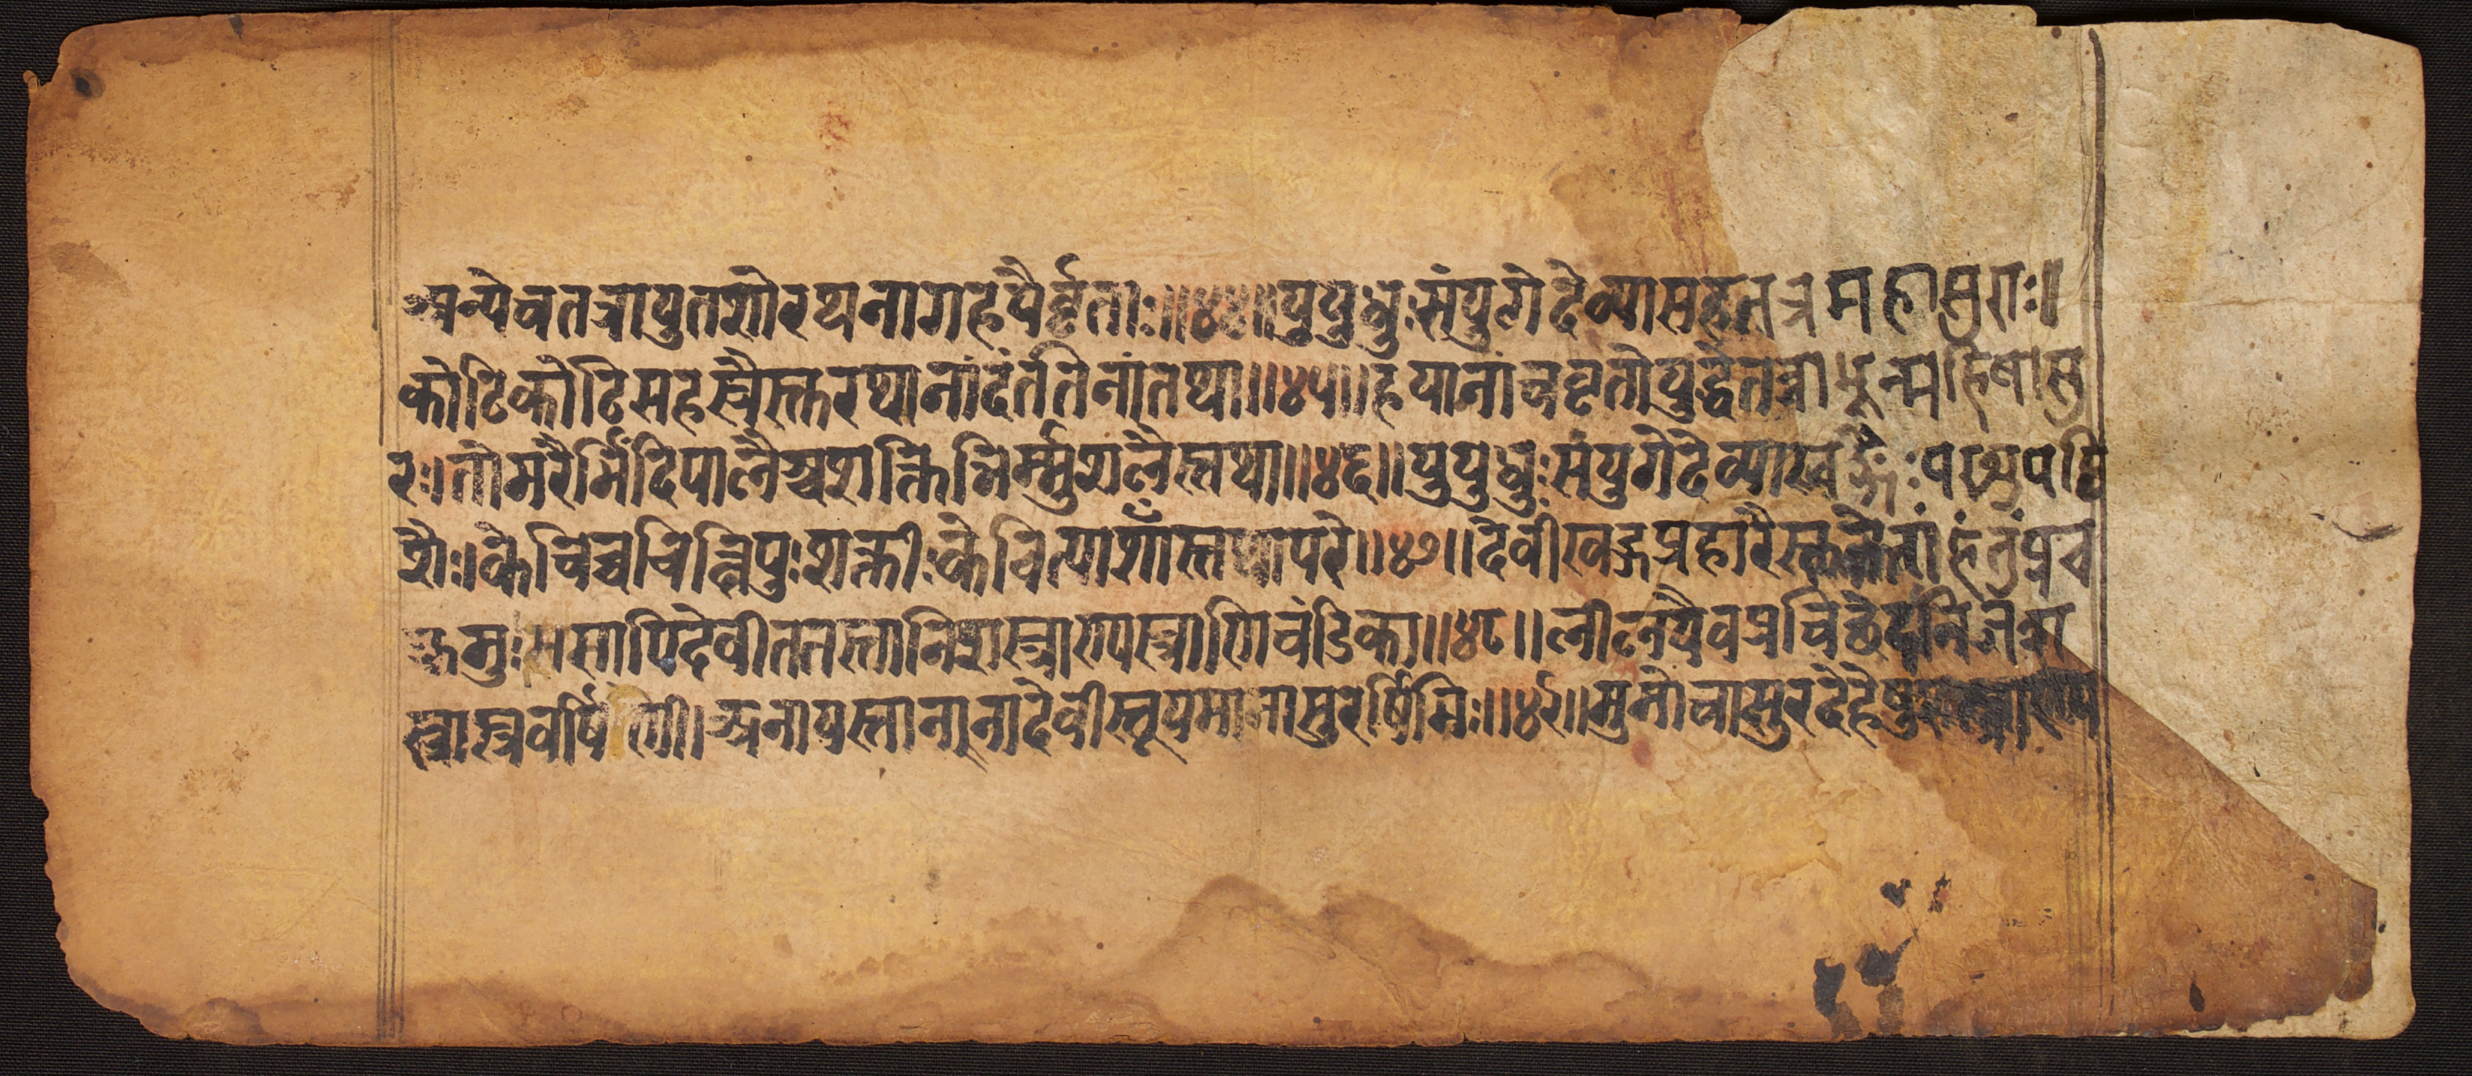 अन्ये च तत्रायुतशो रथनागहयैर्वृताः॥४४॥ युयुधुः संयुगे देव्या सह तत्र महासुराः॥
कोटिकोटिसहस्रैस्तु रथानां दंतितिनां तथा॥४५॥ हयानां च वृतो युद्धे तत्राभून्महिषासु
रः। तोमरैर्भिंदिपालैश्च शक्तिभिर्म्मुशलैस्तथा॥४६॥ युयुधुः संयुगे देव्या खड्गैः परशुपट्टि
शैः। केचिच्च चिक्षिपुः शक्तीः केचित्पाशाँस्तथापरे॥४७॥ देवीं खड्गप्रहारैस्तु ते तां हंतुं प्रच
क्रमुः। सापि देवी ततस्तानि शस्त्राण्यस्त्राणि चंडिका॥४८॥ लीलयैव प्रचिछेद निजश
स्त्रास्त्रवर्षिणी। अनायस्तानना देवी स्तूयमाना सुरर्षिभिः॥४९॥ मुमोचासुरदेहेषु शस्त्राण्य